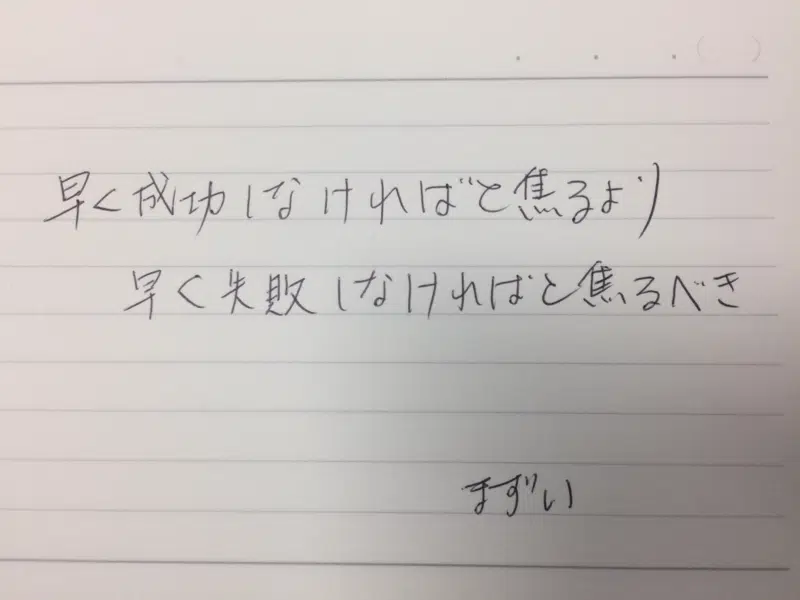 早く成功しなければと焦るより
早く失敗しなければと焦るべき
まずい